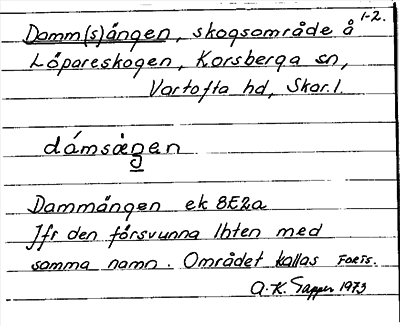 1-2.
Damm(s)ängen, skogsområde å
Löpareskogen, Korsberga sn,
Vartofta hd, Skar.l.
dámsægen
Dammängen ek 8E2a
Jfr den försvunna lhten med
samma namn. Området kallas FORTS.
A.K. Tapper 1973